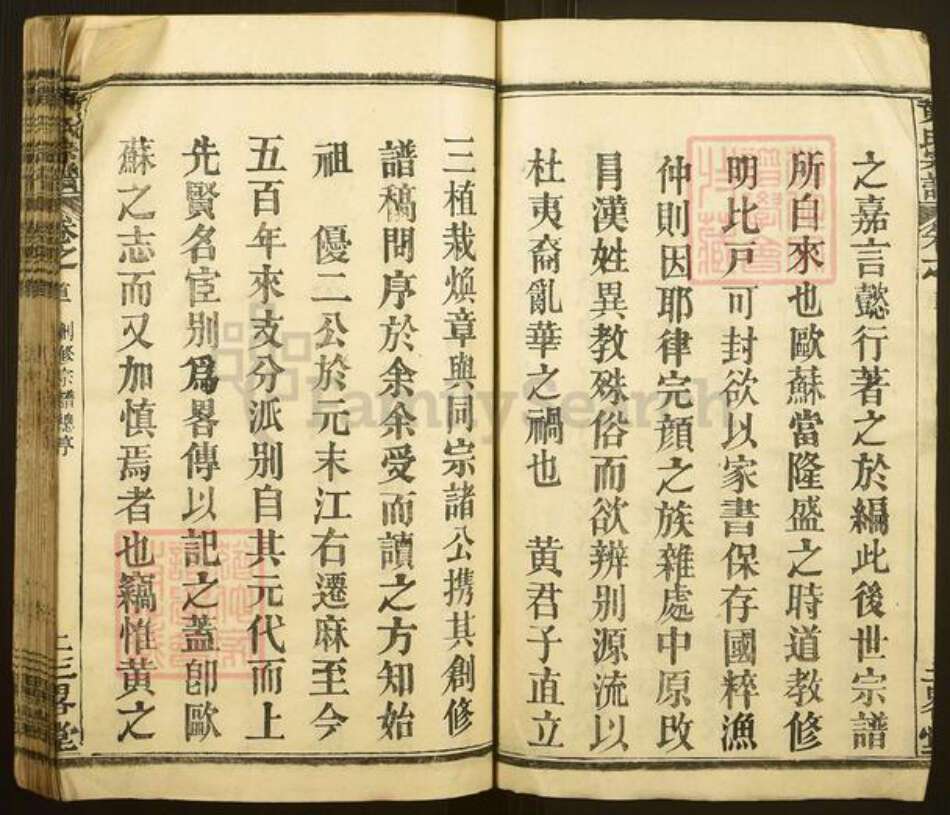 之嘉言懿行著之於編此後世宗譜
所自來也歐蘇當隆盛之時道教修
明比戸可封欲以家書保存國粹漁
仲則因耶律完顔之族雜處中原改
冒漢姓異教殊俗而欲辨别源流以
杜夷裔亂華之禍也 黄君子直立
三植栽煥章與同宗諸公携其創修
譜稿問序於余余受而讀之方知始
祖 優二公於元末江右遷麻至今
五百年來支分派别自其元代而上
先賢名宦别爲畧傳以記之蓋卽歐
蘇之志而又加慎焉者也竊惟黄之
創修宗譜總序